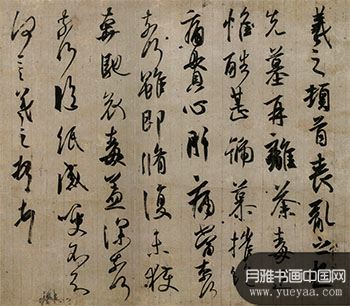 羲之頓首喪亂之極
先墓再離荼毒
惟酷甚號慕摧
痛貫心肝痛當奈何
奈何雖即脩復未獲
奔馳哀毒益深奈何
奈何臨紙感哽不知
何言羲之頓首頓首
月雅书画中国网
www.yueyaa.com